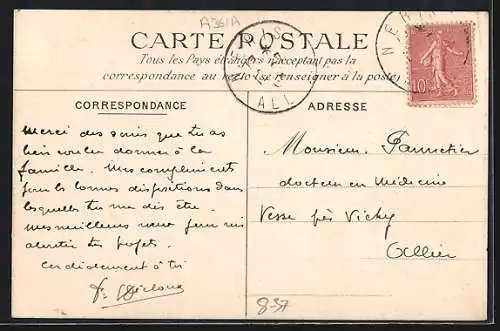 A361A
CARTE POSTALE
NÉRIS
ALL
Tous les Pays étrangers n'acceptent pas la
correspondance au recto (se renseigner à la poste)
10
CORRESPONDANCE
ADRESSE
Merci des soins que tu as
bien voulu donner à la
famille. Mes compliments
pour les bonnes dispositions dans
lesquelles tu me dis être.
Mes meilleurs vœux pour
tes projets.
Cordialement à toi
Monsieur
docteur en Médecine
Vesse près Vichy
Allier
837